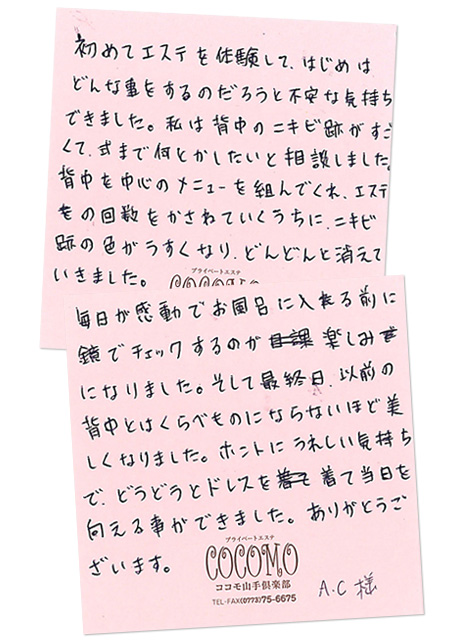 初めてエステを体験して、はじめは
どんな事をするのだろうと不安な気持ち
できました。私は背中のニキビ跡がすご
くて、式まで何とかしたいと相談しました。
背中を中心のメニューを組んでくれ、エステ
の回数をかさねていくうちに、ニキビ
跡の色がうすくなり、どんどんと消えて
いきました。
プライベートエステ
COCOMO
毎日が感動でお風呂に入れる前に
鏡でチェックするのが楽しみ
になりました。そして最終日、以前の
背中とはくらべものにならないほど美
しくなりました。ホントにうれしい気持ち
で、どうどうとドレスを着て当日を
向える事ができました。ありがとうご
ざいます。
プライベートエステ
COCOMO
ココモ山手倶楽部
TEL・FAX(0773)75-6675
A.C 様